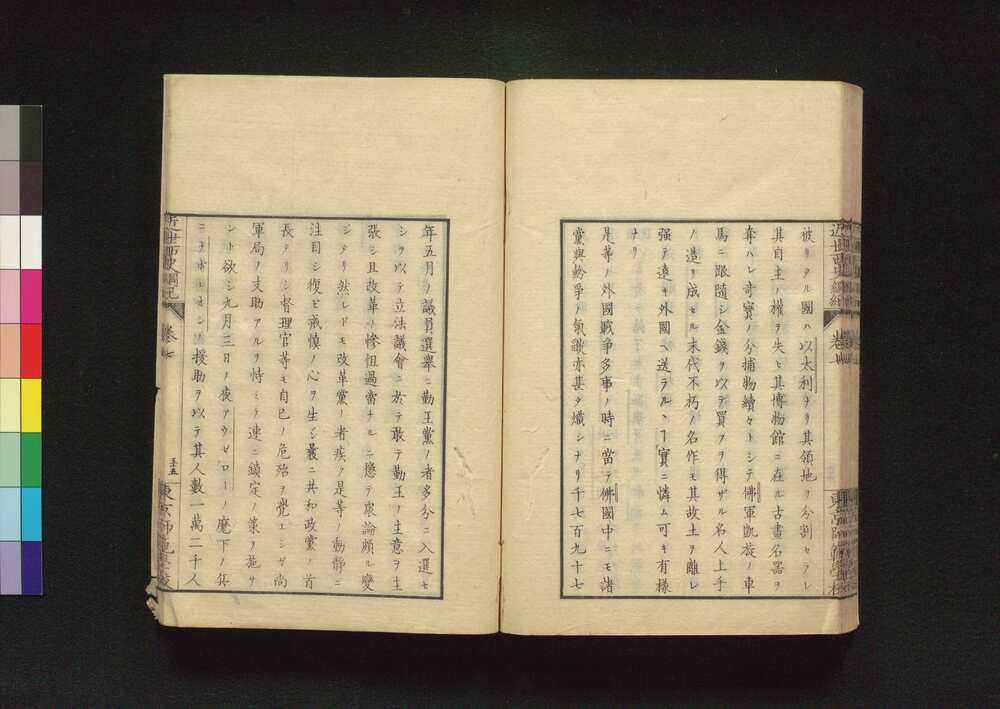 被リタル國ハ以太利ナリ其領地ヲ分割セラレ
其自主ノ權ヲ失ヒ其博物館ニ在ル古畫名器ヲ
奪ハレ竒寳ノ分捕物續々トシテ佛軍凱旋ノ車
馬ニ跟隨シ金錢ヲ以テ買フヲ得ザル名人上手
ノ造リ成セル末代不朽ノ名作モ其故土ヲ離レ
强テ遠キ外國ヘ送ラルヽヿ實ニ憐ム可キ有樣
ナリ
是等ノ外國戰爭多事ノ時ニ當テ佛國中ニモ諸
黨與紛爭ノ氣𦦨亦甚タ熾シナリ千七百九十七
近世西史綱紀
卷七
年五月ノ議員選擧ニ勤王黨ノ者多分ニ入選セ
シヲ以テ立法議會ニ於テ敢テ勤王ノ主意ヲ主
張シ且改革ノ慘怛過當ナルニ懲テ衆論頗ル變
ジタリ然レドモ改革黨ノ者疾ク是等ノ動靜ニ
注目シ復ビ戒愼ノ心ヲ生シ曩ニ共和政黨ノ首
長タリシ督理官等モ自已ノ危殆ヲ覺エシガ尚
軍局ノ支助アルヲ恃ミテ速ニ鎭定ノ策ヲ施サ
ント欲シ九月三日ノ夜アウゼローノ麾下ノ兵
援助ヲ以テ其人數一萬二千人
近世西史綱紀
卷七
五五
東京師範學校